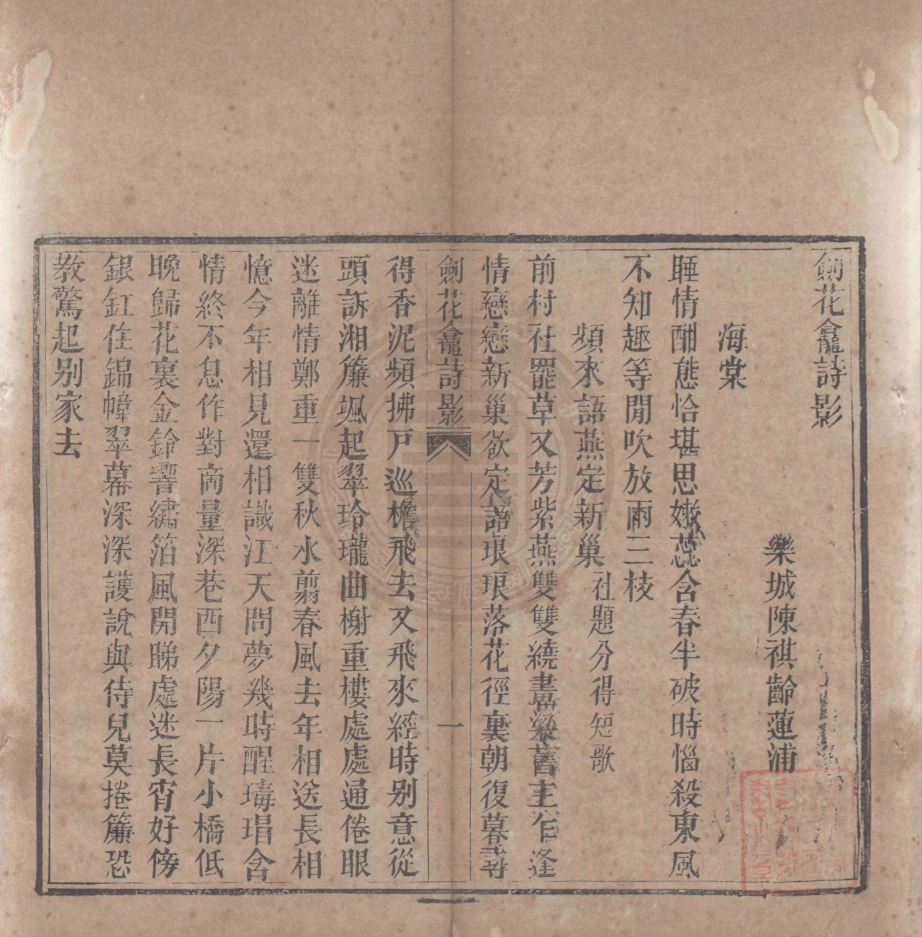 劍花龕詩影
樂城陳祺齡蓮浦
海棠
睡情酣態恰堪思嫩蕊含春半破時惱殺東風
不知趣等閒吹放兩三枝
頻來語燕定新巢社題分得短歌
前村社罷草又芳紫燕雙雙繞畫梁舊主乍逢
情戀戀新巢欲定語琅琅落花徑裏朝復暮尋
劍花龕詩影
一
得香泥頻拂戸巡檐飛去又飛來經時别意從
頭訴湘簾颯起翠玲瓏曲榭重樓處處通倦眼
迷離情鄭重一雙秋水翦春風去年相送長相
憶今年相見還相識江天問夢幾時醒瑇瑁含
情終不息作對商量深巷西夕陽一片小橋低
晚歸花裏金鈴響繡箔風開睇處迷長宵好傍
銀缸住錦幛翠幕深深護說與侍兒莫捲簾恐
教驚起别家去